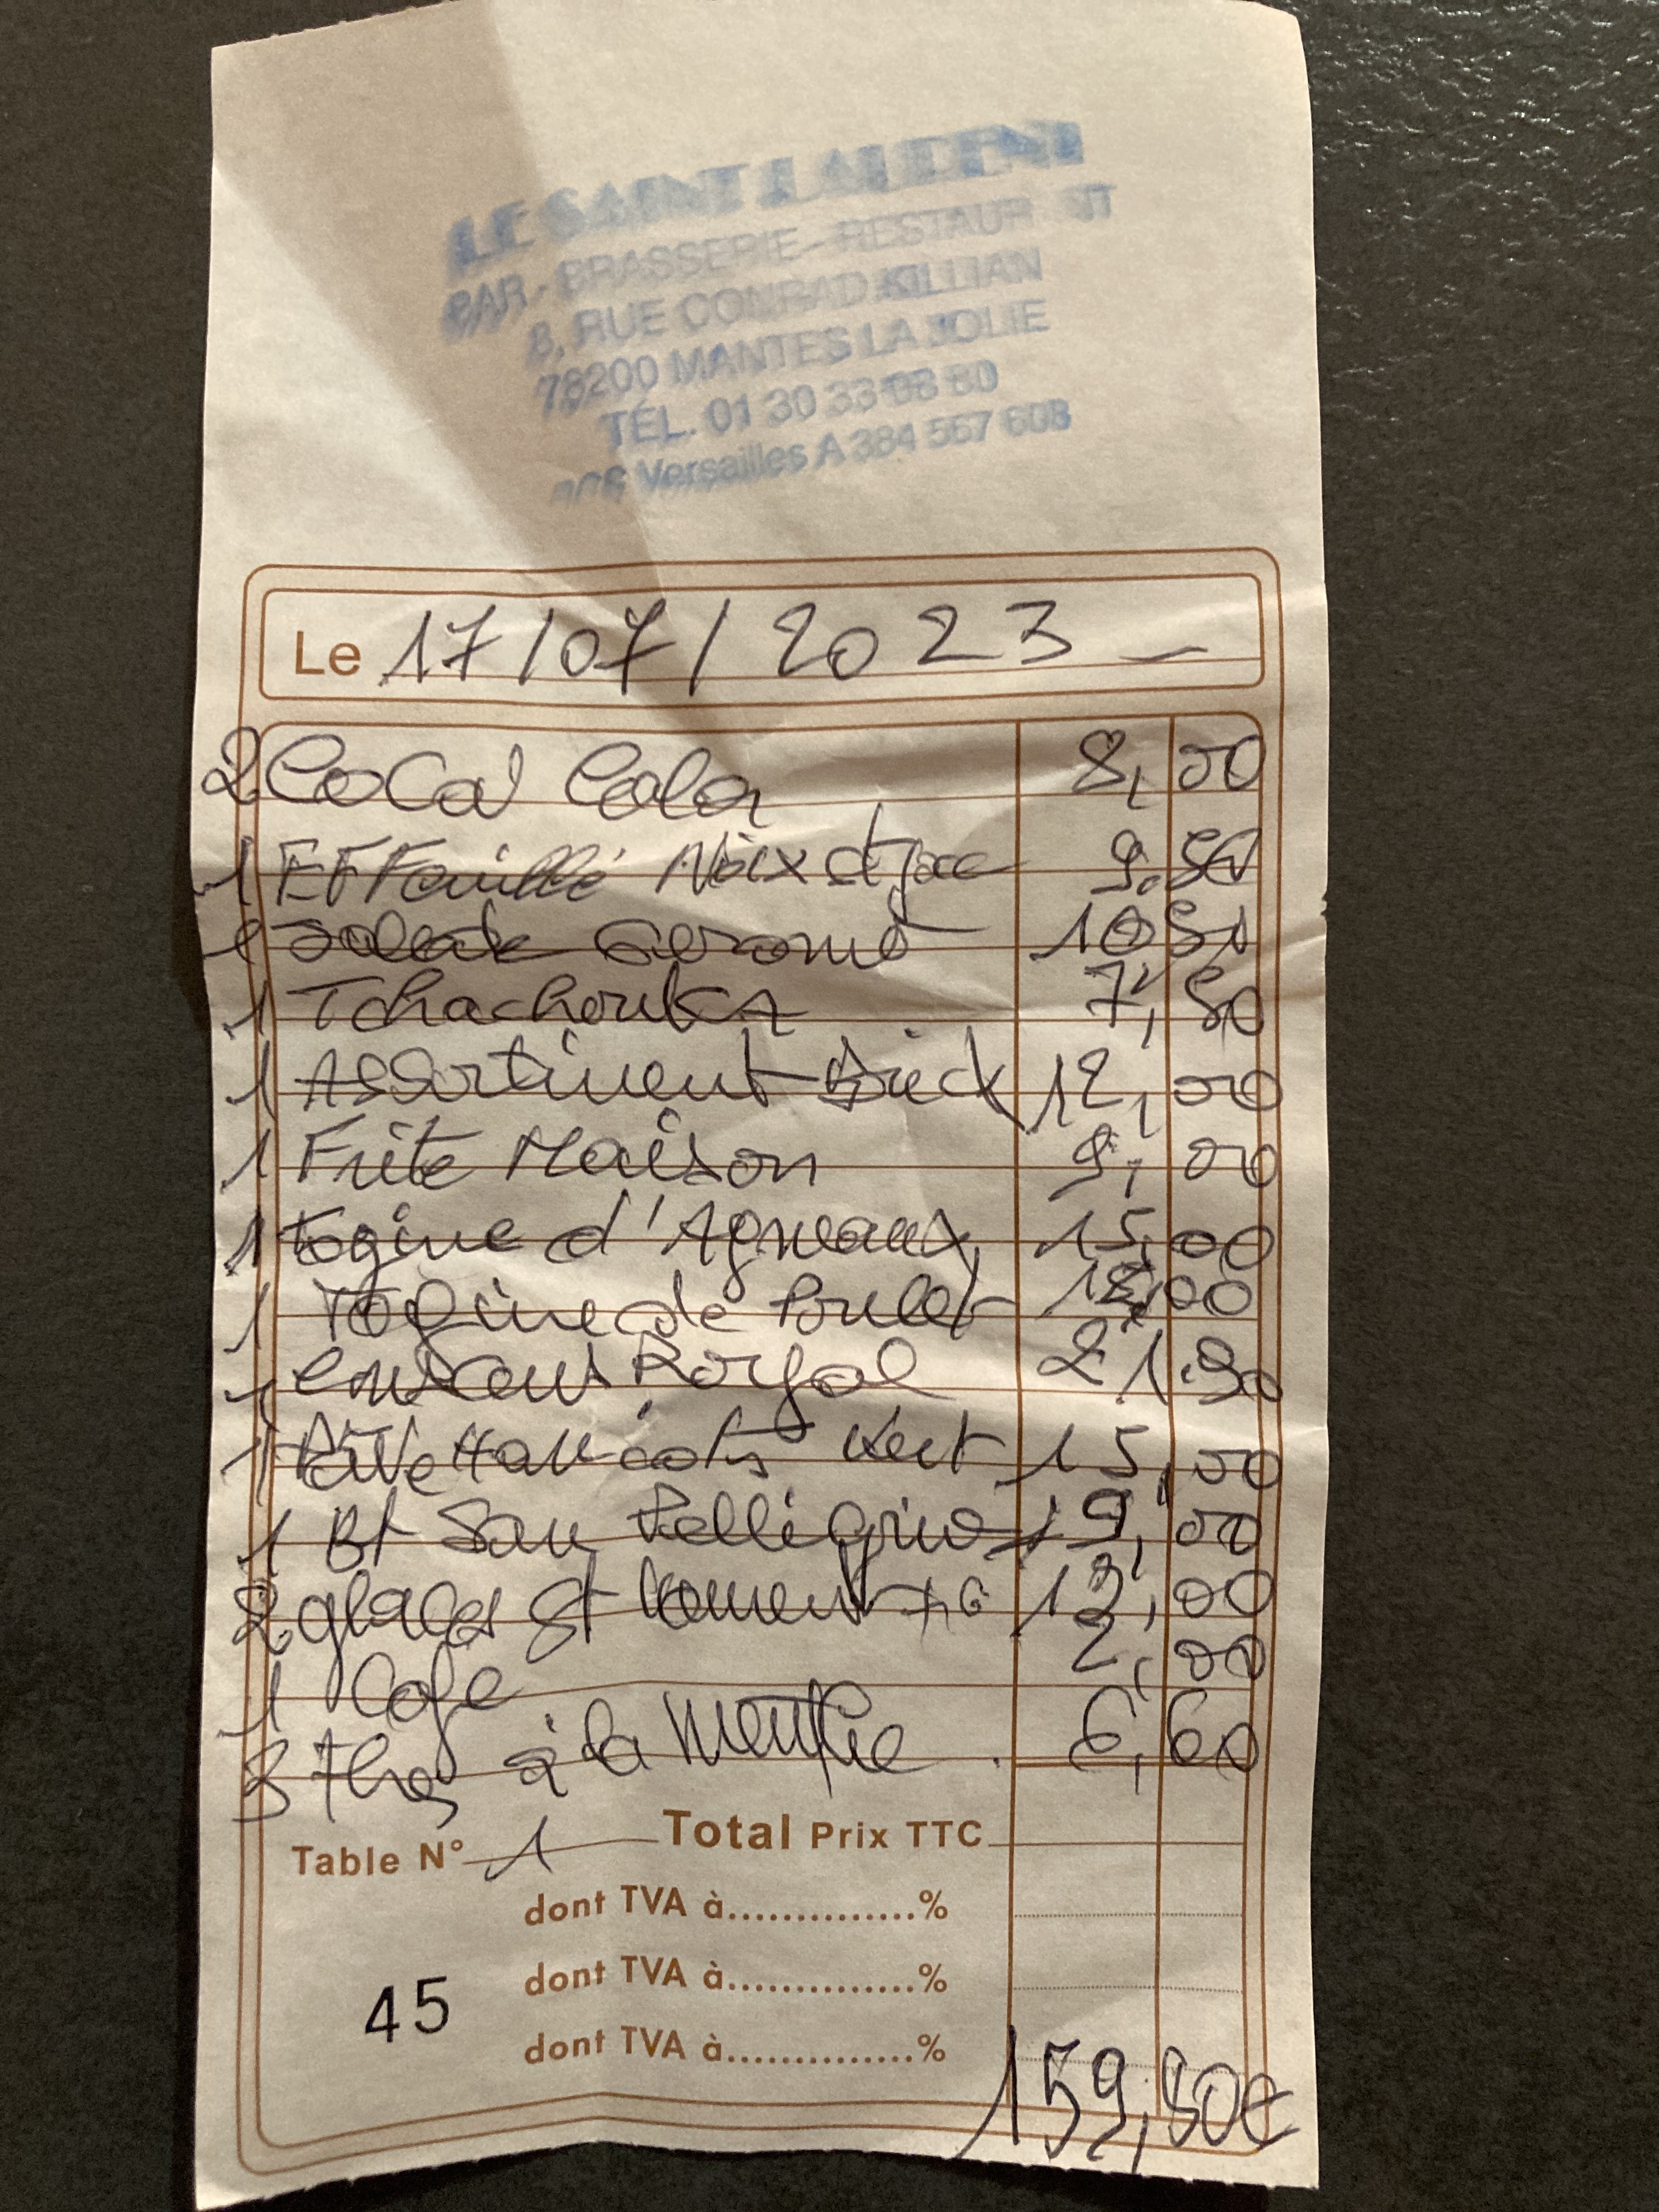 LE SAINT LAURENT
BAR - BRASSERIE - RESTAURANT
8, RUE CONRAD KILLIAN
78200 MANTES LA JOLIE
TÉL. 01 30 33 98 80
RCS Versailles A 384 567 608
Le 17/07/2023
2 Coca Cola 8,00
1 Effeuillé Noix st Jac 9.50
1 Salade 10,50
1 Tchachouka 7,50
1 Assortiment Brick 12,00
1 Frite Maison 9,00
1 Tagine d'Agneaux 15,00
1 Tagine de Poulet 00
1 Couscous Royal 21.90
1 Haricots Vert 15,00
1 Bt San Pelligrino 9,00
2 glaces St 00
1 Cafe 2,00
3 thes à la Menthe 6,60
Table N° 1 Total Prix TTC
dont TVA à..............%
dont TVA à..............%
45
dont TVA à..............%
159,90€